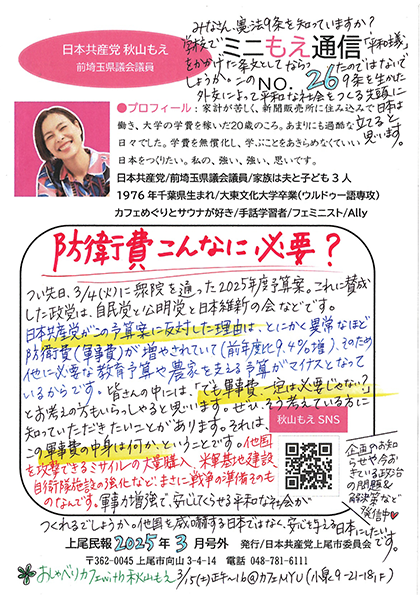 みなさん、憲法9条を知っていますか?
学校で「平和主義」
をかかげた条文としてならったのではないで
しょうか。この9条を生かした
外交によって平和な社会をつくる先頭に
日本は
立てると
思います。
日本共産党 秋山もえ
前埼玉県議会議員
ミニもえ通信
NO. 26
●プロフィール:家計が苦しく、新聞販売所に住み込みで
働き、大学の学費を稼いだ20歳のころ。あまりにも過酷な
日々でした。学費を無償化し、学ぶことをあきらめなくていい
日本をつくりたい。私の、強い、強い、思いです。
日本共産党/前埼玉県議会議員/家族は夫と子ども3人
1976年千葉県生まれ/大東文化大学卒業(ウルドゥー語専攻)
カフェめぐりとサウナが好き/手話学習者/フェミニスト/Ally
防衛費こんなに必要?
つい先日、3/4(火)に衆院を通った2025年度予算案。これに賛成
した政党は、自民党と公明党と日本維新の会などです。
日本共産党がこの予算案に反対した理由は、とにかく異常なほど
防衛費(軍事費)が増やされていて(前年度比9.4%増)、そのため
他に必要な教育予算や農家を支える予算がマイナスとなって
いるからです。皆さんの中には、「でも軍事費、一定は必要じゃない?」
とお考えの方もいらっしゃると思います。ぜひ、そう考えている方に
知っていただきたいことがあります。それは、
この軍事費の中身は何か、ということです。他国
を攻撃できるミサイルの大量購入、米軍基地建設
自衛隊施設の強化など、まさに戦争の準備そのも
のなんです。軍事力増強で、安心してくらせる平和な社会が
つくれるでしょうか。他国を威嚇する日本ではなく、安心を与える日本にしたい
です。
秋山もえ SNS
企画のお知
らせや今お
きている政治
の問題&
解決策など
発信中♥
上尾民報 2025年3月号外 発行/日本共産党上尾市委員会
〒362-0045 上尾市向山3-4-14 電話 048-781-6111
おしゃべりカフェwith秋山もえ 3/15(土)正午〜16@カフェNYU(小泉9-21-18,1F)